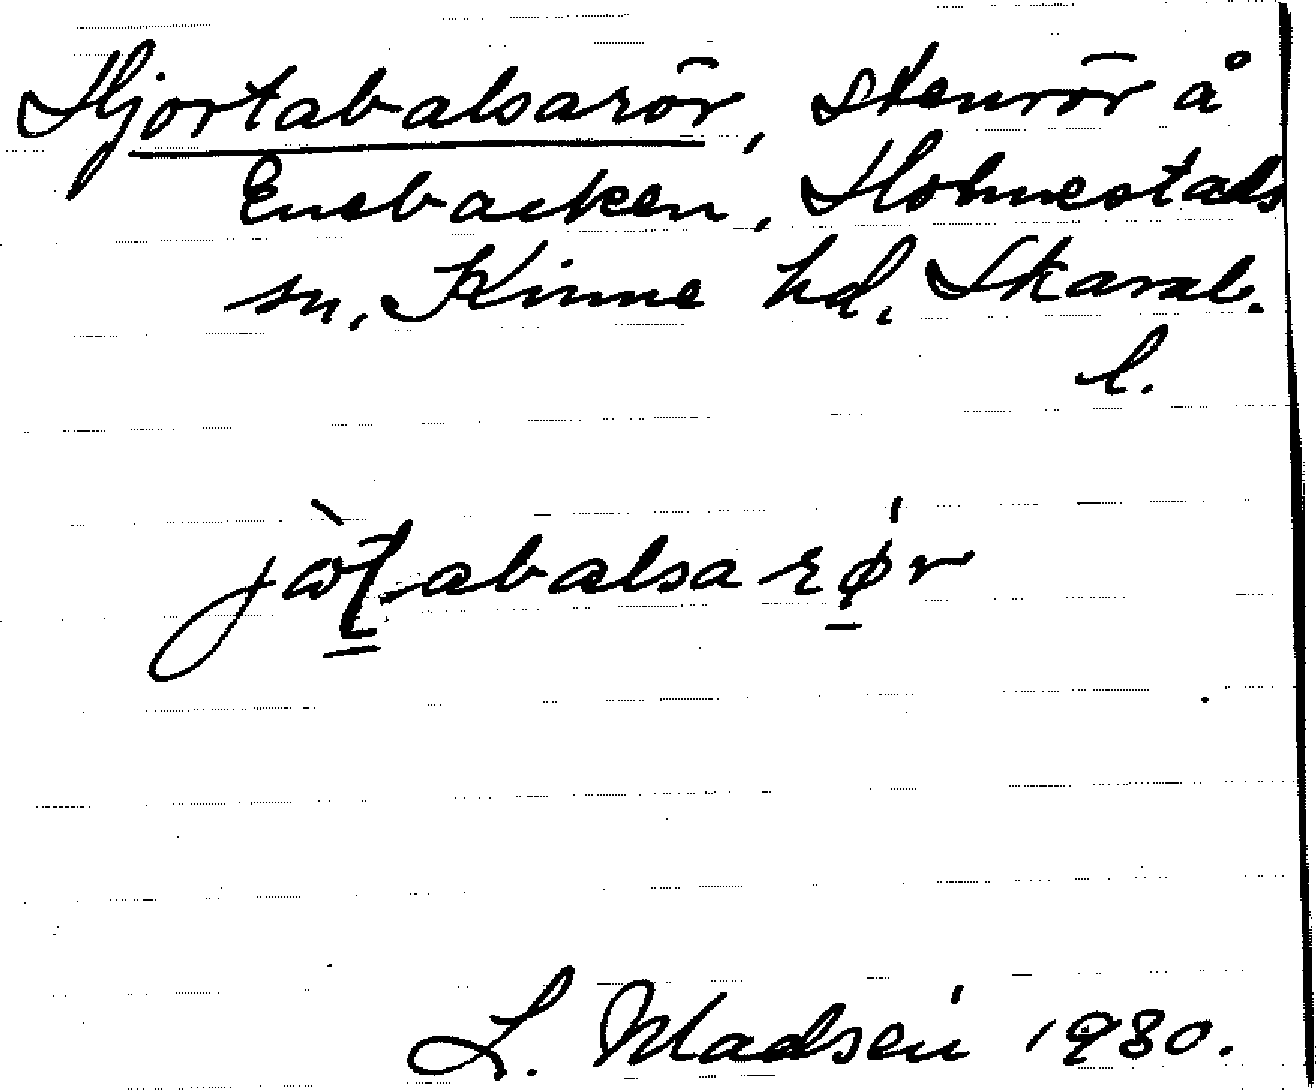 Hjortabalsarör, stenrör å
Enebacken, Holmestads
sn, Kinne hd, Skarab.
l.
L. Madsén 1930.